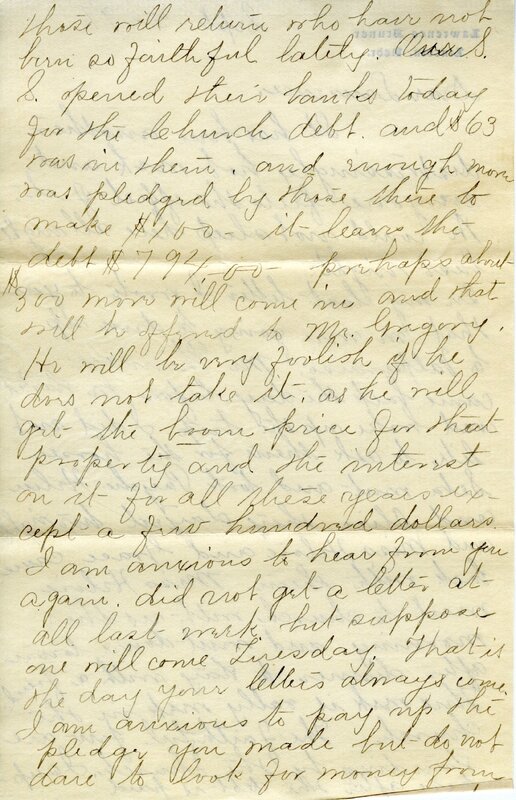 those will return who have not
been so faithful lately. Our S.
S. opened their banks today
for the Church debt. and $63
was in them. and enough more
was pledged by those there to
make $100- it leaves the
debt $794.00- perhaps about
$300 more will come in and that
will be offered to Mr. Gregory.
He will be very foolish if he
does not take it. as he will
get the boom price for that
property and the interest
on it for all these years ex-
cept a few hundred dollars.
I am anxious to hear from you
again. did not get a letter at
all last week but suppose
one will come Tuesday. That is
the day your letters always come.
I am anxious to pay up the
pledge you made but do not
dare to look for money from
Lawrence Bruner